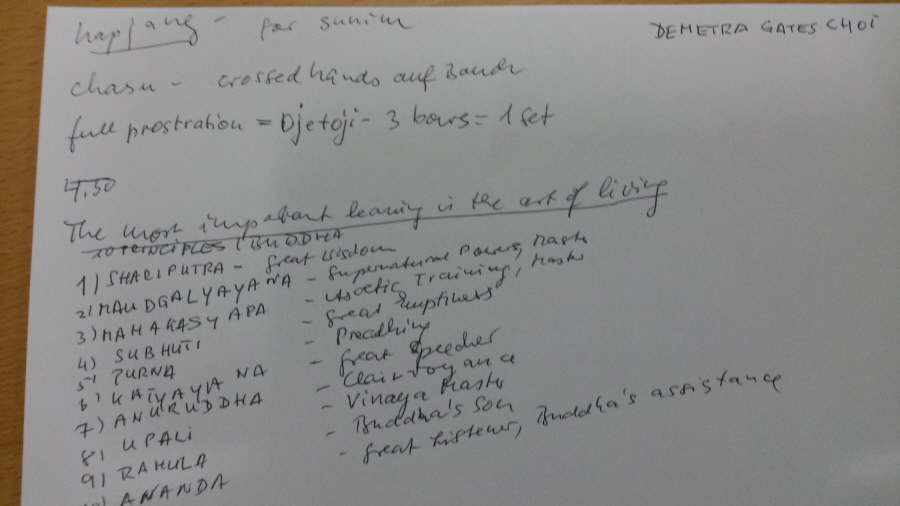 hapjang - for sunim
DEMETRA GATES CHOI
chasu - crossed hands auf Bauch
full prostration = Djetoji - 3 bows = 1 set
4.30
The most important learning is the art of living
10 PRINCIPLES BUDDHA
1) SHARIPUTRA - great wisdom
2) MAUDGALYAYANA - Supernatural Powers, Master
3) MAHAKASYAPA - Ascetic Training, Master
4) SUBHUTI - great emptiness
5) PURNA - Preaching
6) KATYAYANA - great speecher
7) ANURUDDHA - Clairvoyance
8) UPALI - Vinaya Master
9) RAHULA - Buddha's son
10) ANANDA - great listener, Buddha's assistance